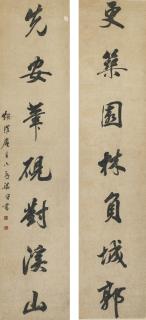 更築園林負城郭
先安筆硯對溪山
梁同書